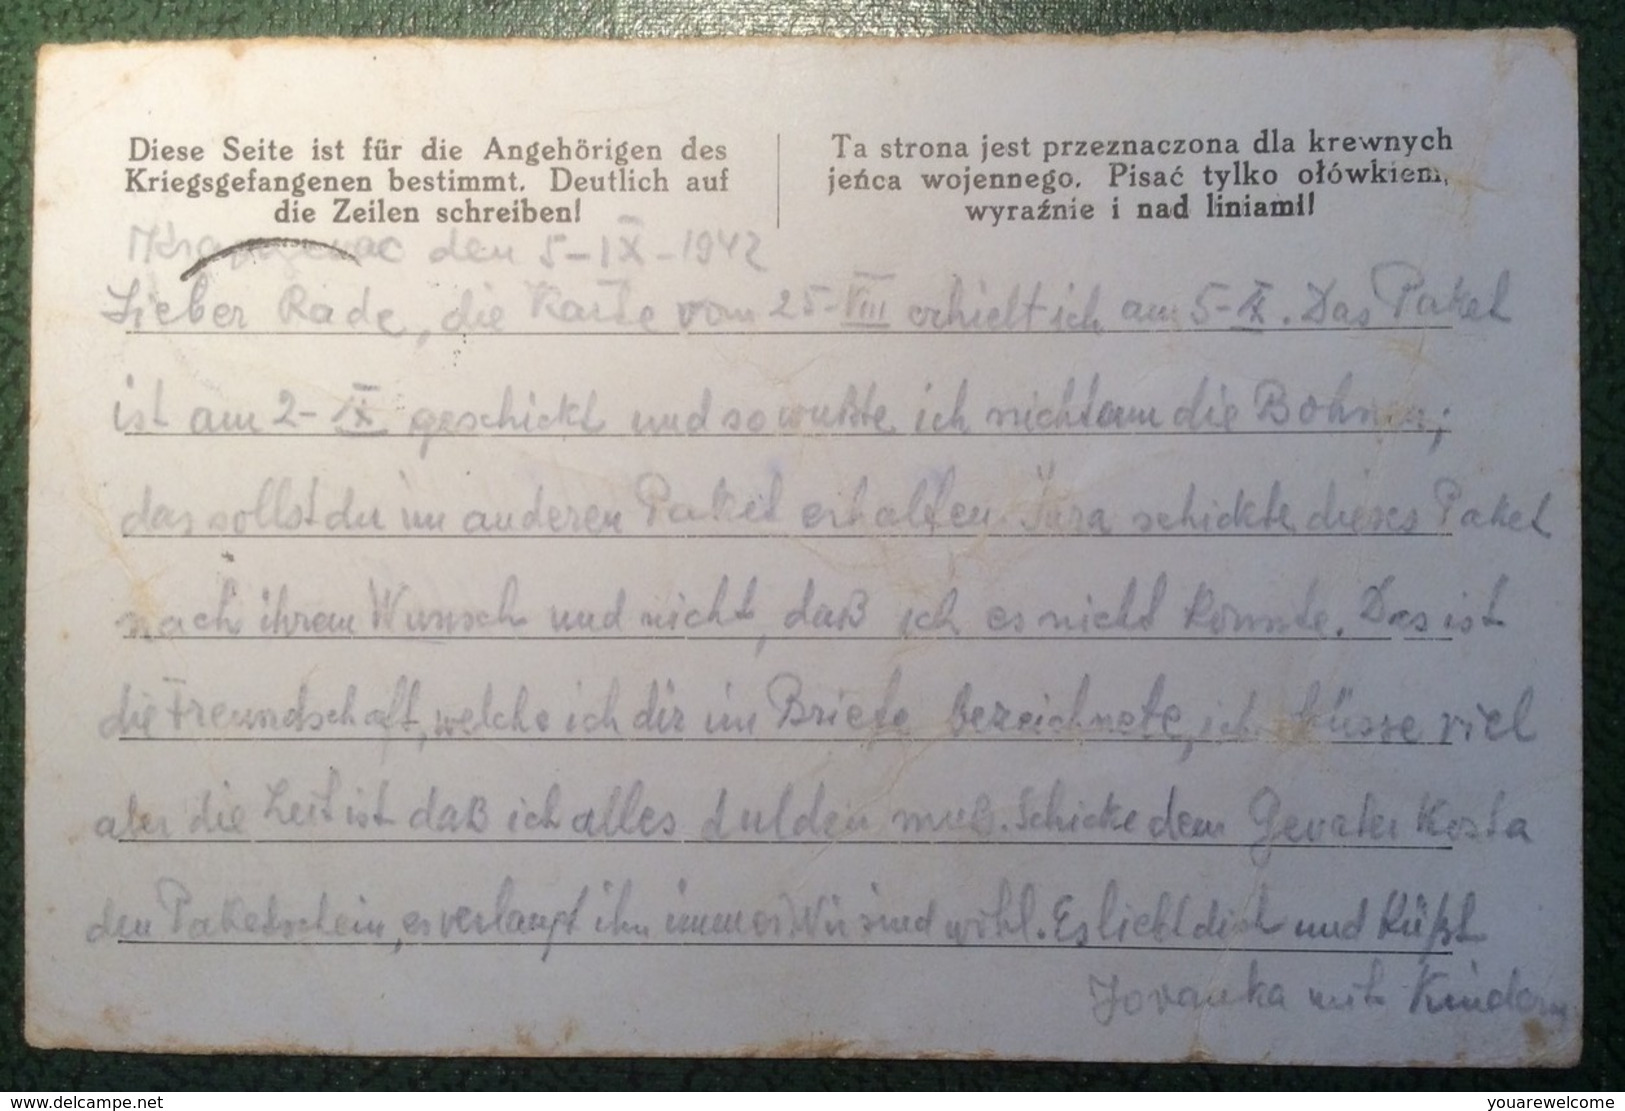 Diese Seite ist für die Angehörigen des
Kriegsgefangenen bestimmt. Deutlich auf
die Zeilen schreiben!
Ta strona jest przeznaczona dla krewnych
jeńca wojennego. Pisać tylko ołówkiem,
wyraźnie i nad liniami!
den 5-IX-1942
Lieber Rade, die Karte vom 25-VIII erhielt ich am 5-IX. Das Paket
ist am 2-IX geschickt und so wußte ich nicht um die Bohnen;
das sollst du im anderen Paket erhalten. Jura schickte dieses Paket
nach ihrem Wunsch und nicht, daß ich es nicht konnte. Das ist
die Freundschaft, welche ich dir im Briefe bezeichnete, ich küsse viel
aber die Zeit ist daß ich alles dulden muß. Schicke dem Gevater Kosta
den Paketschein, er verlangt ihn immer. Wir sind wohl. Es liebt dich und küßt
Jovanka mit Kindern
delcampe.net
youarewelcome